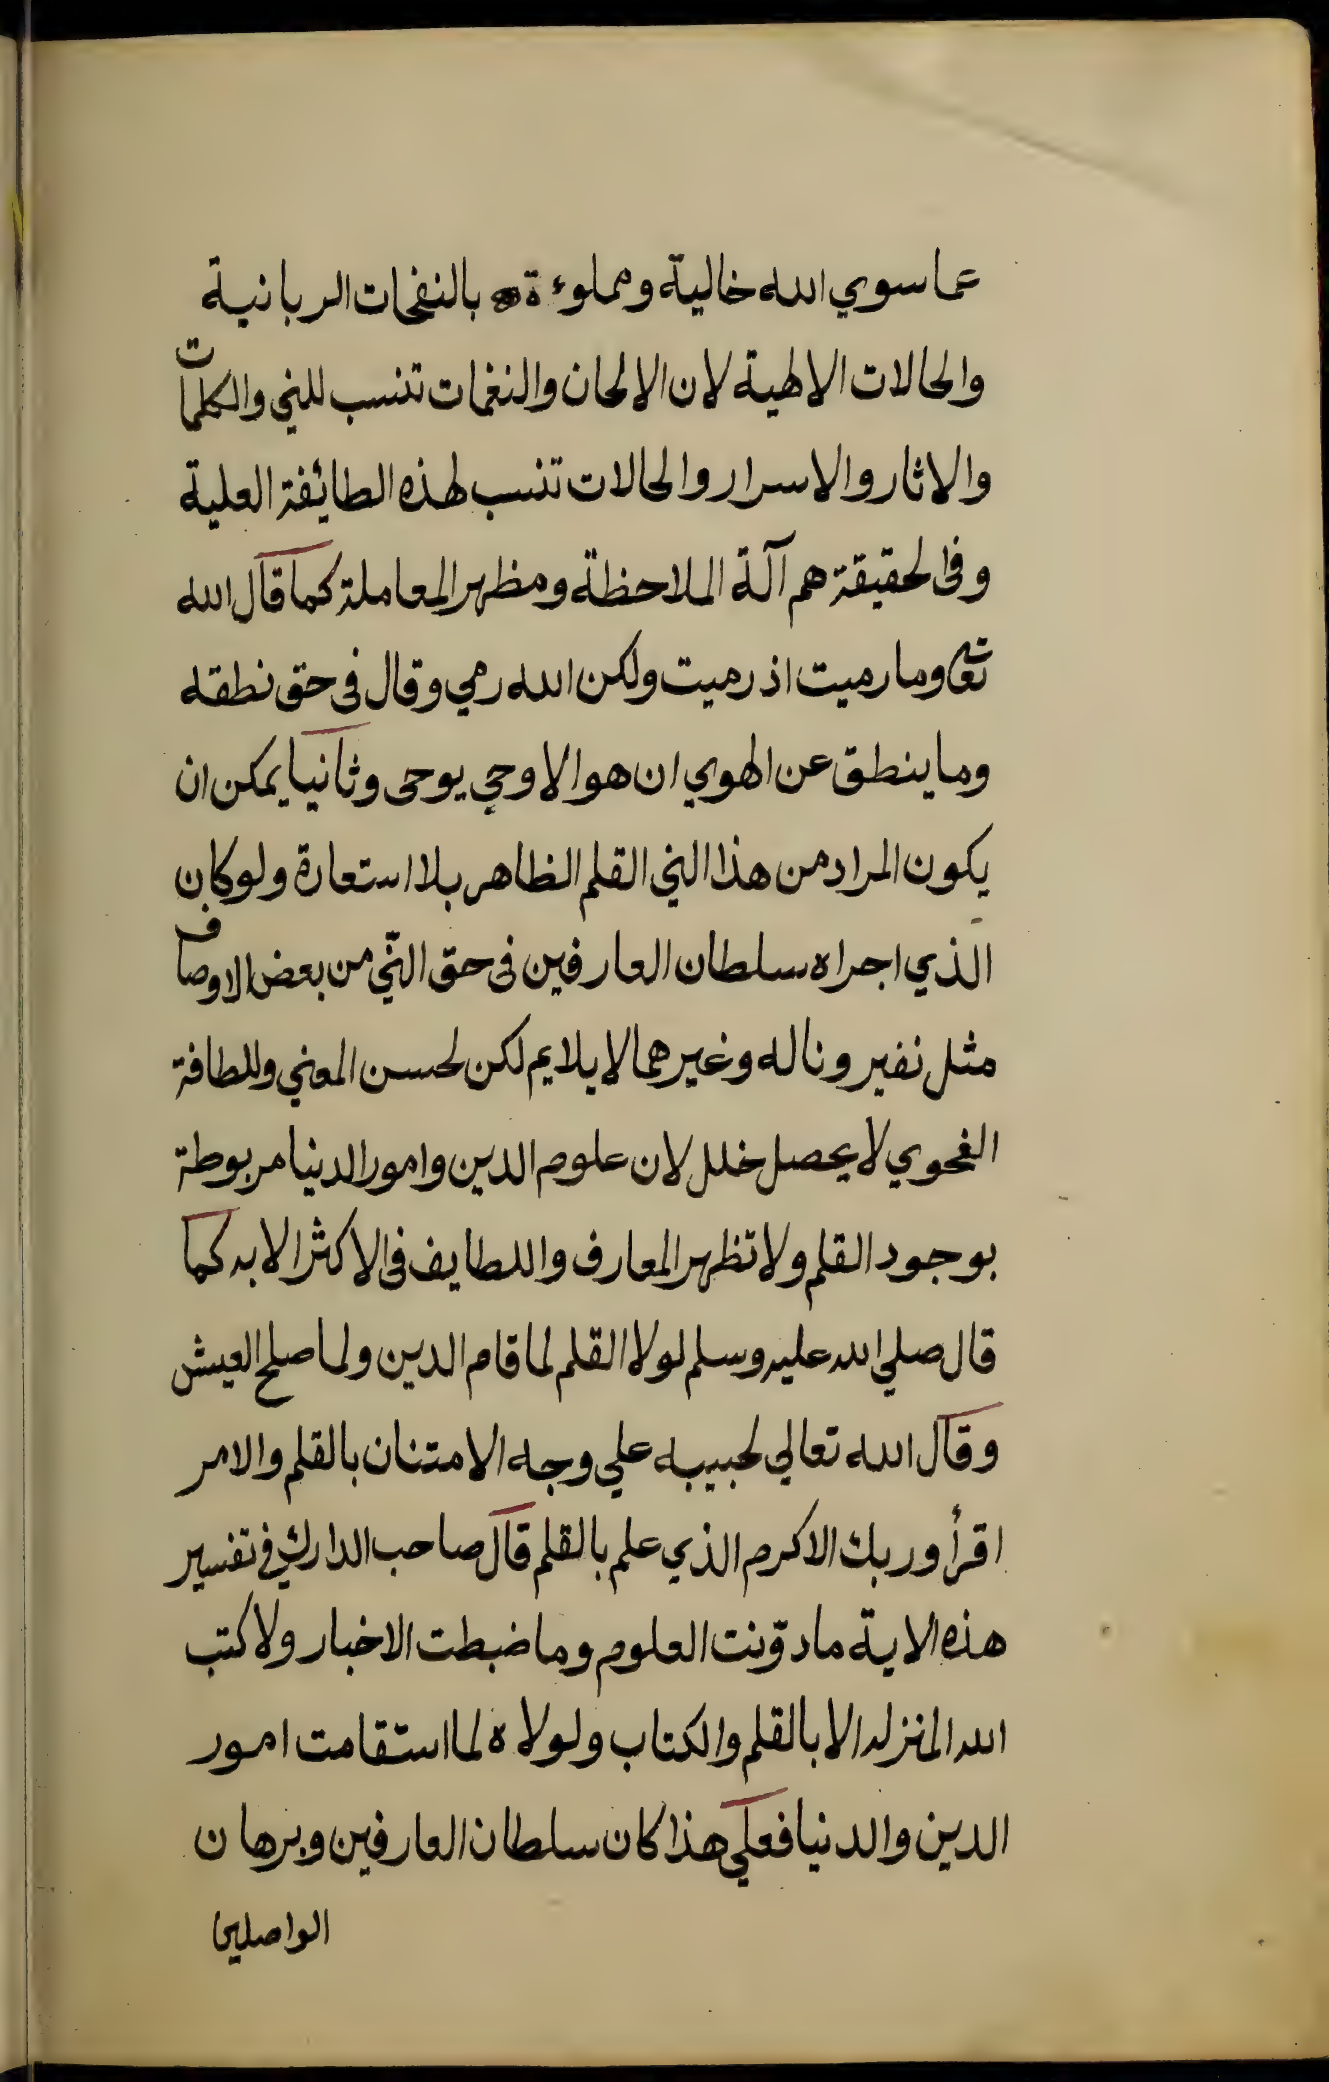 عما سوي الله خالية ومملوءة بالنفحات الربانية
والحالات الالهية لان الالحان والنغمات تنسب للني والكلمات
والاثار والاسرار والحالات تنسب لهذه الطائفة العلية
وفى الحقيقة هم آلة الملاحظة ومظهر المعاملة كما قال الله
تعا وما رميت اذ رميت ولكن الله رمي وقال فى حق نطقه
وما ينطق عن الهوي ان هو الا وحي يوحى وثانيا يمكن ان
يكون المراد من هذا الني القلم الظاهر بلا استعارة ولو كان
الذي اجراه سلطان العارفين فى حق الني من بعض الاوصاف
مثل نفير وناله وغيرهما لا يلايم لكن لحسن المعني وللطافة
الفحوي لا يحصل خلل لان علوم الدين وامور الدنيا مربوطة
بوجود القلم ولا تظهر المعارف واللطايف فى الاكثر الا به كما
قال صلي الله عليه وسلم لولا القلم لما قام الدين ولما صلح العيش
وقال الله تعالي لحبيبه علي وجه الامتنان بالقلم والامر
اقرأ وربك الاكرم الذي علم بالقلم قال صاحب المدارك في تفسير
هذه الاية ما دوّنت العلوم وما ضبطت الاخبار ولا كتب
الله المنزله الا بالقلم والكتاب ولولاه لما استقامت امور
الدين والدنيا فعلي هذا كان سلطان العارفين وبرهان
الواصلين